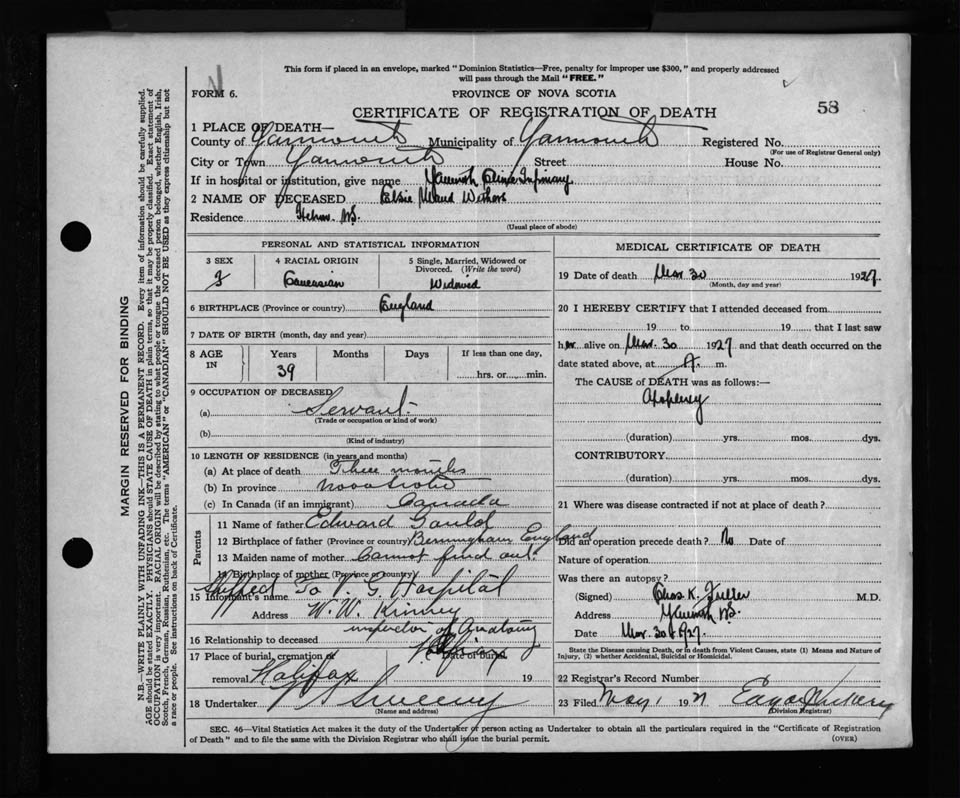 This form if placed in an envelope, marked "Dominion Statistics—Free, penalty for improper use $300," and properly addressed
will pass through the Mail "FREE."
FORM 6.
PROVINCE OF NOVA SCOTIA
CERTIFICATE OF REGISTRATION OF DEATH
58
1 PLACE OF DEATH—
County of Yarmouth Municipality of Yarmouth Registered No.
(For use of Registrar General only)
City or Town Yarmouth Street House No.
If in hospital or institution, give name Yarmouth Infirmary
2 NAME OF DECEASED Elsie Maud
Residence N.S.
(Usual place of abode)
PERSONAL AND STATISTICAL INFORMATION
3 SEX F
4 RACIAL ORIGIN Caucasian
5 Single, Married, Widowed or Divorced. (Write the word) Widowed
6 BIRTHPLACE (Province or country) England
7 DATE OF BIRTH (month, day and year)
8 AGE IN Years 39 Months Days If less than one day, hrs. or min.
9 OCCUPATION OF DECEASED
(a) Servant
(Trade or occupation or kind of work)
(b)
(Kind of industry)
10 LENGTH OF RESIDENCE (in years and months)
(a) At place of death Three months
(b) In province Nova Scotia
(c) In Canada (if an immigrant) Canada
Parents
11 Name of father Edward Gould
12 Birthplace of father (Province or country) Bermingham England
13 Maiden name of mother Cannot find out
Birthplace of mother (Province or country)
Shipped To V. G. Hospital
15 Informant's name
Address W. W. Kinney
inspector of Anatomy
16 Relationship to deceased
17 Place of burial, cremation or Date of burial
removal Halifax 19
18 Undertaker Sweeny
(Name and address)
MEDICAL CERTIFICATE OF DEATH
19 Date of death Mar 30 1927
(Month, day and year)
20 I HEREBY CERTIFY that I attended deceased from
19 to 19 that I last saw
her alive on Mar. 30 1927 and that death occurred on the
date stated above, at A. m.
The CAUSE of DEATH was as follows:—
Apoplexy
(duration) yrs. mos. dys.
CONTRIBUTORY
(duration) yrs. mos. dys.
21 Where was disease contracted if not at place of death?
Did an operation precede death? No Date of
Nature of operation
Was there an autopsy?
(Signed) Chas K. Fuller M.D.
Address Yarmouth N.S.
Date Mar. 30 1927.
State the Disease causing Death, or in death from Violent Causes, state (1) Means and Nature of
Injury, (2) whether Accidental, Suicidal or Homicidal.
22 Registrar's Record Number
23 Filed May 1 1927
Division Registrar)
SEC. 46—Vital Statistics Act makes it the duty of the Undertaker or person acting as Undertaker to obtain all the particulars required in the "Certificate of Registration
of Death" and to file the same with the Division Registrar who shall issue the burial permit.
(OVER)
MARGIN RESERVED FOR BINDING
N.B.—WRITE PLAINLY WITH UNFADING INK—THIS IS A PERMANENT RECORD. Every item of information should be carefully supplied.
AGE should be stated EXACTLY. PHYSICIANS should STATE CAUSE OF DEATH in plain terms, so that it may be properly classified. Exact statement of
OCCUPATION is very important. RACIAL ORIGIN will be described by stating to what people or tongue the deceased person belonged, whether English, Irish,
Scotch, French, German, Russian, Ruthenian, etc. The terms "AMERICAN" or "CANADIAN" SHOULD NOT BE USED as they express citizenship but not
a race or people. See instructions on back of Certificate.